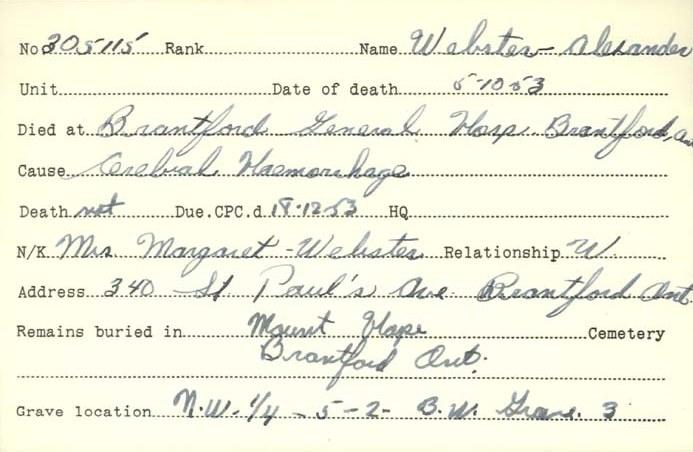 No 305115 Rank Name Webster - Alexander
Unit Date of death 5-10-53
Died at Brantford General Hosp Brantford, Ont
Cause Cerebral Haemorrhage
Death not Due. CPC.d 18-12-53 HQ
N/K Mrs Margaret - Webster Relationship W.
Address 340 St Paul's Ave. Brantford Ont.
Remains buried in Mount Hope Cemetery
Brantford Ont.
Grave location N.W. 1/4 - 5 - 2 - B.W. Grave. 3